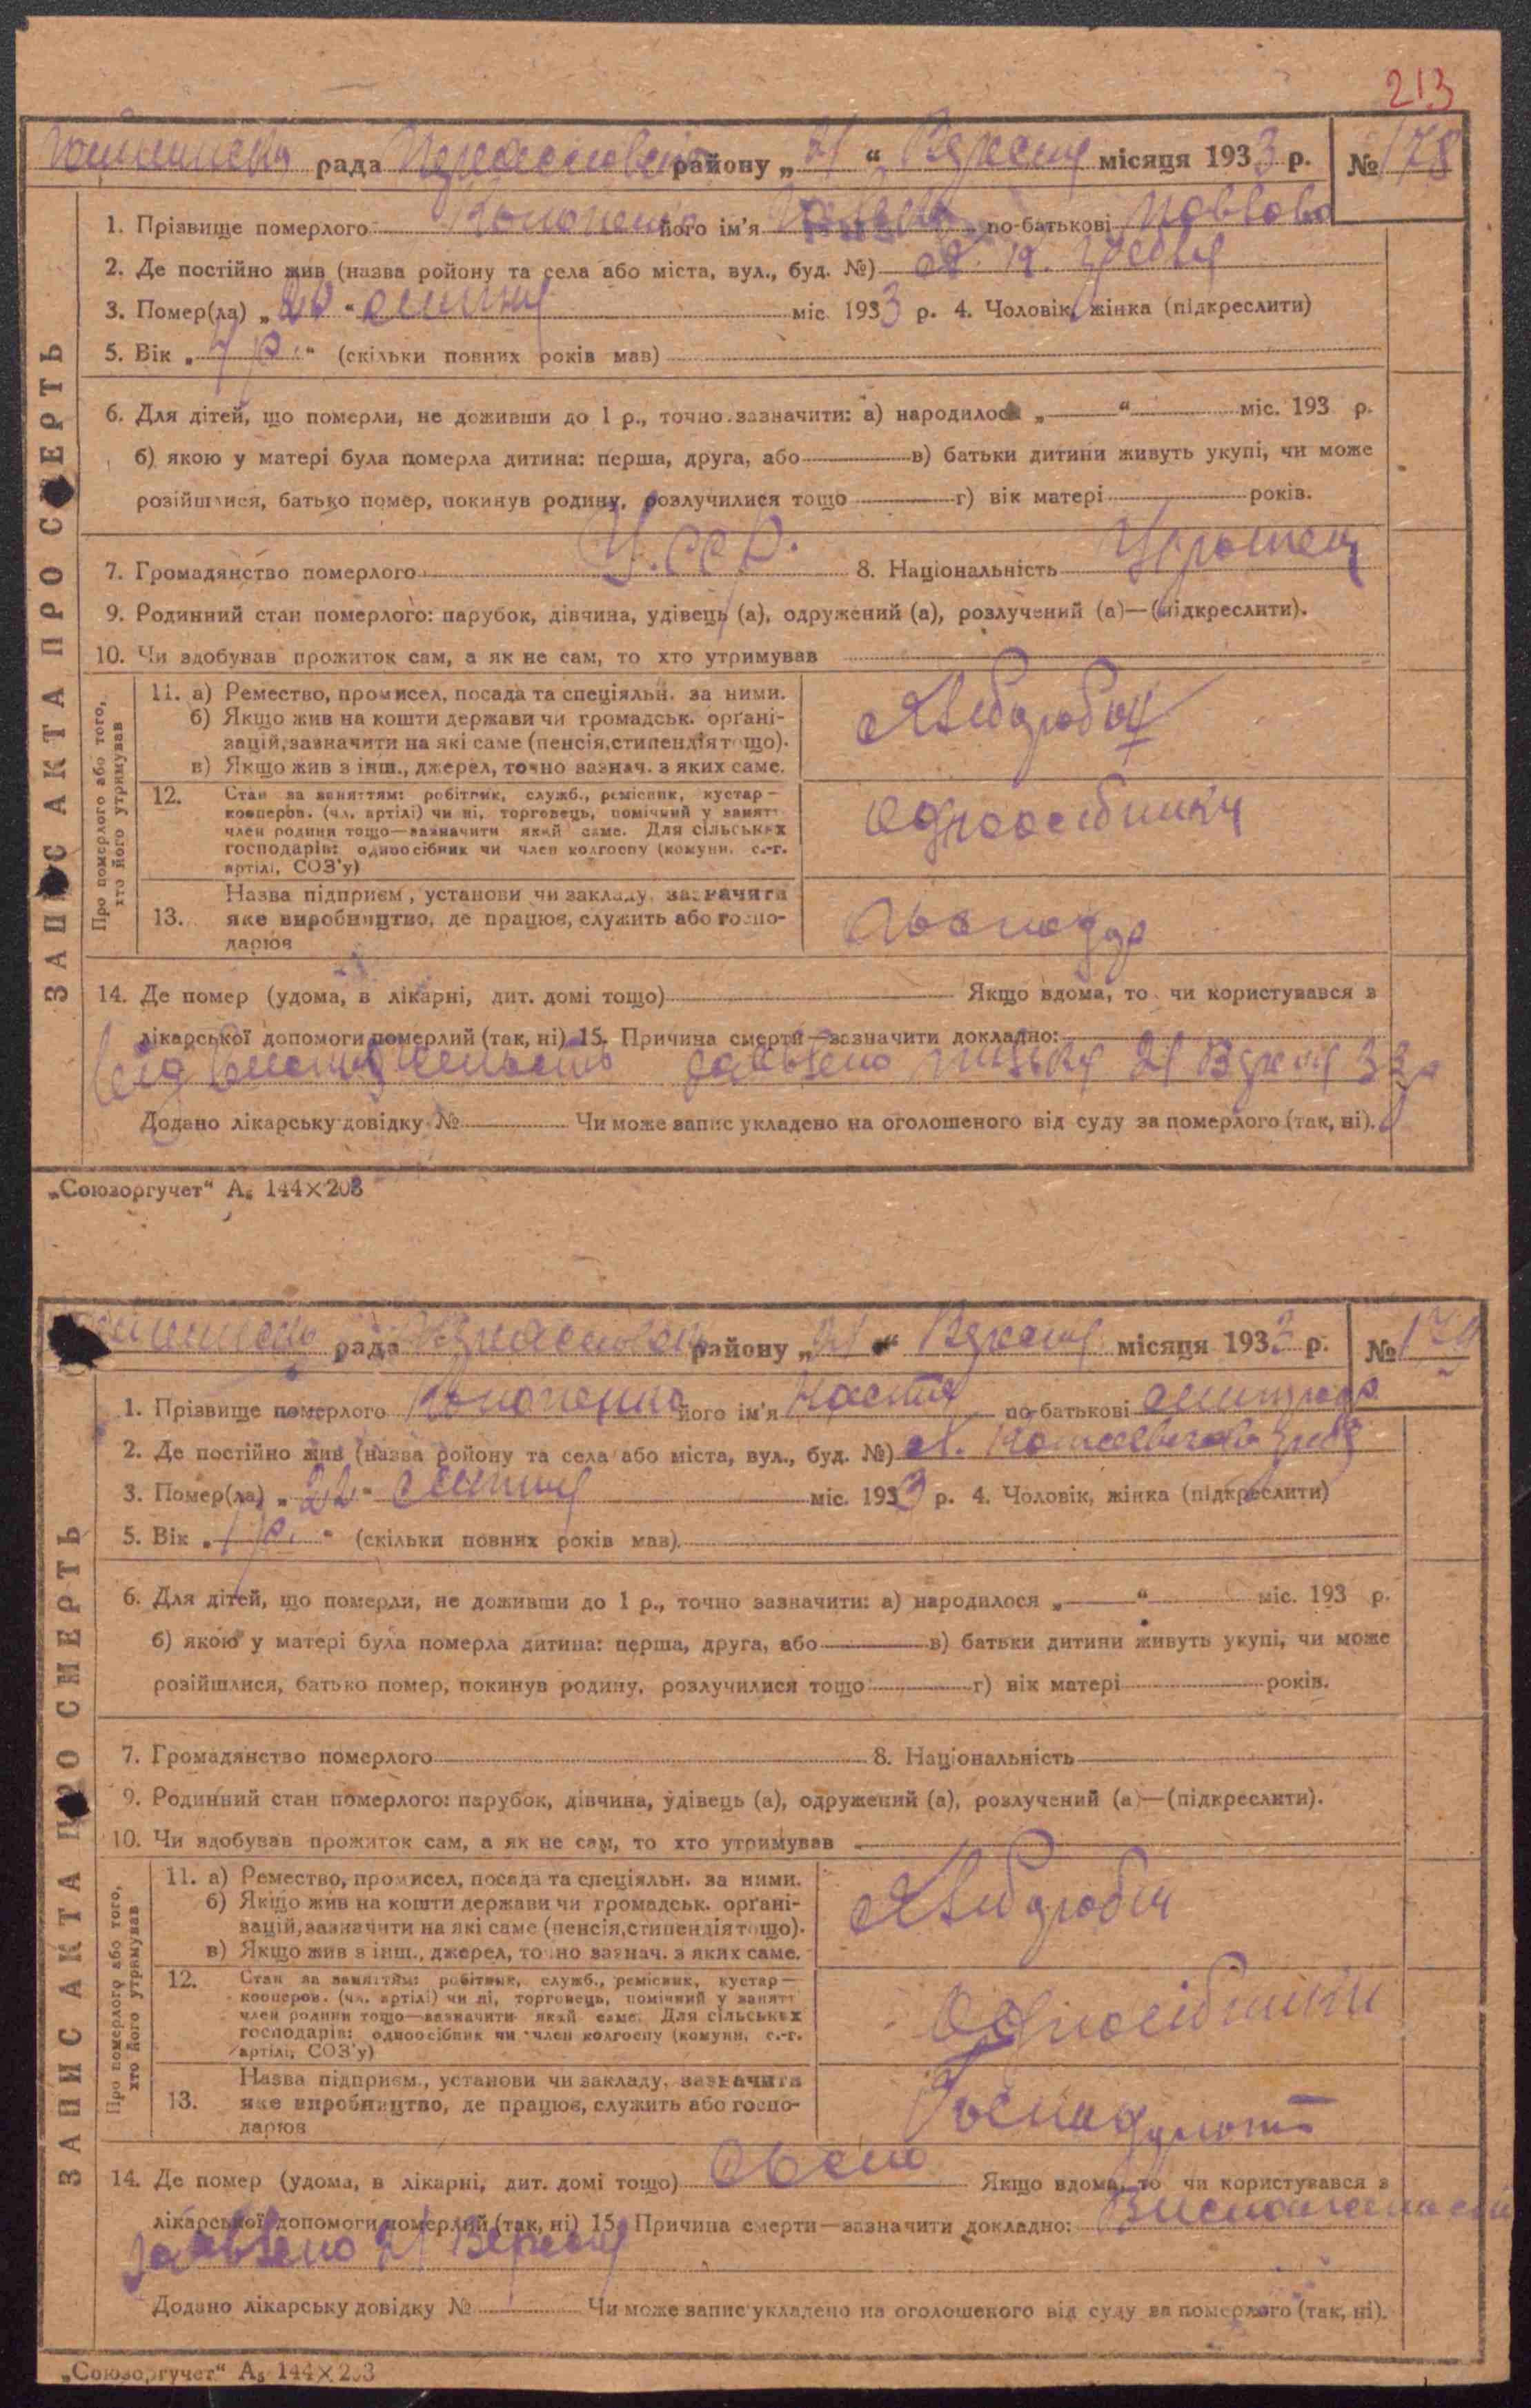 213
рада району „ 21 “ Вересня місяця 1933 р. № 178
1. Прізвище померлого Кононенко його ім'я по-батькові Павлова
2. Де постійно жив (назва ройону та села або міста, вул., буд. №)
3. Помер(ла) „ 22 “ липня міс 1933 р. 4. Чоловік, жінка (підкреслити)
5. Вік „ р. “ (скільки повних років мав)
6. Для дітей, що померли, не доживши до 1 р., точно зазначити: а) народилося „ “ міс. 193 р.
б) якою у матері була померла дитина: перша, друга, або в) батьки дитини живуть укупі, чи може
розійшлися, батько помер, покинув родину, розлучилися тощо г) вік матері років.
7. Громадянство померлого У.ССР. 8. Національність
9. Родинний стан померлого: парубок, дівчина, удівець (а), одружений (а), розлучений (а)—(підкреслити).
10. Чи здобував прожиток сам, а як не сам, то хто утримував
11. а) Ремество, промисел, посада та спеціяльн. за ними.
б) Якщо жив на кошти держави чи громадськ. орґані-
зацій, зазначити на які саме (пенсія, стипендія тощо).
в) Якщо жив з інш., джерел, точно зазнач. з яких саме.
Хлібороби
12. Стан за заняттям: робітник, служб., ремісник, кустар—
кооперов. (чл. артілі) чи ні, торговець, помічний у занятт
член родини тощо—зазначити який саме. Для сільських
господарів: одноосібник чи член колгоспу (комуни, с.-г.
артілі, СОЗ'у)
Одноосібники
13. Назва підприєм., установи чи закладу, зазначити
яке виробництво, де працює, служить або госпо-
дарює
14. Де помер (удома, в лікарні, дит. домі тощо) Якщо вдома, то чи користувався з
лікарської допомоги померлий (так, ні) 15. Причина смерти—зазначити докладно:
від заявлено 21 Вересня 33 р
Додано лікарську довідку № Чи може запис укладено на оголошеного від суду за померлого (так, ні).
ЗАПИС АКТА ПРО СМЕРТЬ
Про померлого або того,
хто його утримував
„Союзоргучет“ А₅ 144×203
рада району „ 21 “ Вересня місяця 1933 р. №
1. Прізвище померлого Кононенко його ім'я Настя по-батькові
2. Де постійно жив (назва ройону та села або міста, вул., буд. №)
3. Помер(ла) „ 22 “ липня міс. 1933 р. 4. Чоловік, жінка (підкреслити)
5. Вік „ 1 р. “ (скільки повних років мав).
6. Для дітей, що померли, не доживши до 1 р., точно зазначити: а) народилося „ “ міс. 193 р.
б) якою у матері була померла дитина: перша, друга, або в) батьки дитини живуть укупі, чи може
розійшлися, батько помер, покинув родину, розлучилися тощо г) вік матері років.
7. Громадянство померлого 8. Національність
9. Родинний стан померлого: парубок, дівчина, удівець (а), одружений (а), розлучений (а)—(підкреслити).
10. Чи здобував прожиток сам, а як не сам, то хто утримував
11. а) Ремество, промисел, посада та спеціяльн. за ними.
б) Якщо жив на кошти держави чи громадськ. орґані-
зацій, зазначити на які саме (пенсія, стипендія тощо).
в) Якщо жив з інш., джерел, точно зазнач. з яких саме.
Хлібороби
12. Стан за заняттям: робітник, служб., ремісник, кустар—
кооперов. (чл. артілі) чи ні, торговець, помічний у занятт
член родини тощо—зазначити який саме. Для сільських
господарів: одноосібник чи член колгоспу (комуни, с.-г.
артілі, СОЗ'у)
Одноосібники
13. Назва підприєм., установи чи закладу, зазначити
яке виробництво, де працює, служить або госпо-
дарює
14. Де помер (удома, в лікарні, дит. домі тощо) Якщо вдома, то чи користувався з
лікарської допомоги померлий (так, ні) 15. Причина смерти—зазначити докладно:
заявлено 21 Вересня
Додано лікарську довідку № Чи може запис укладено на оголошеного від суду за померлого (так, ні).
ЗАПИС АКТА ПРО СМЕРТЬ
Про померлого або того,
хто його утримував
„Союзоргучет“ А₅ 144×203